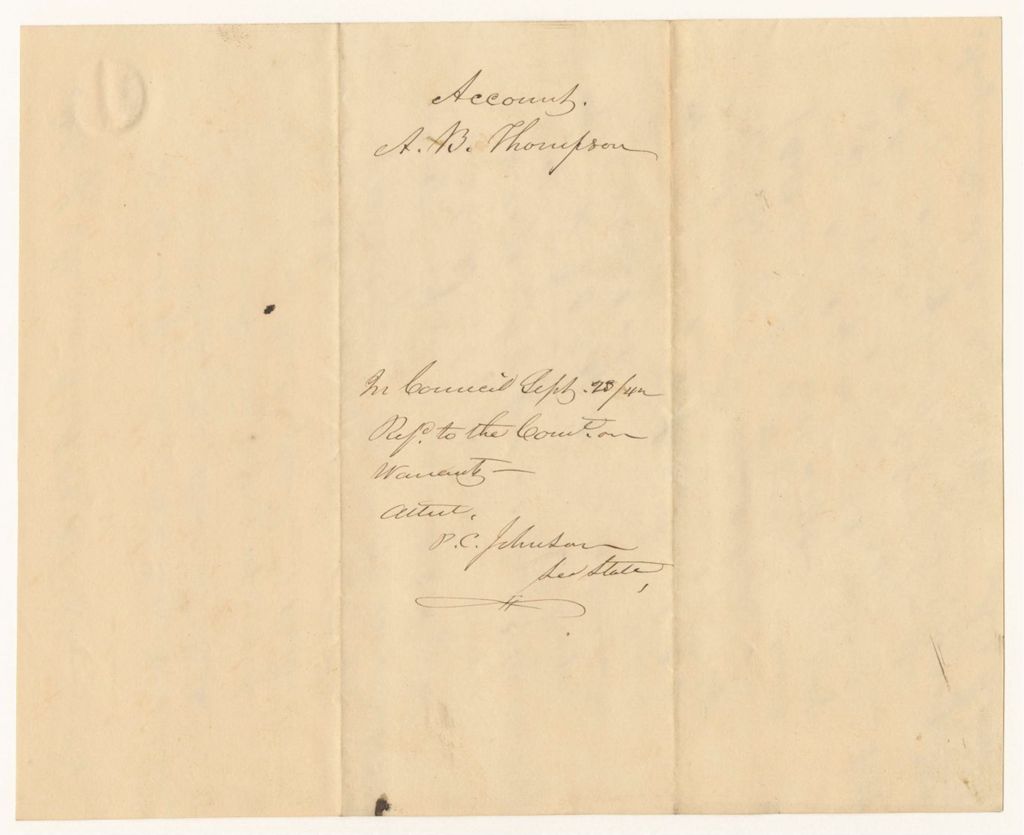 Account.
A. B. Thompson
In Council Sept. 28/42
Refd. to the Comt. on
Warrants —
Attest,
P. C. Johnson
Sec State,